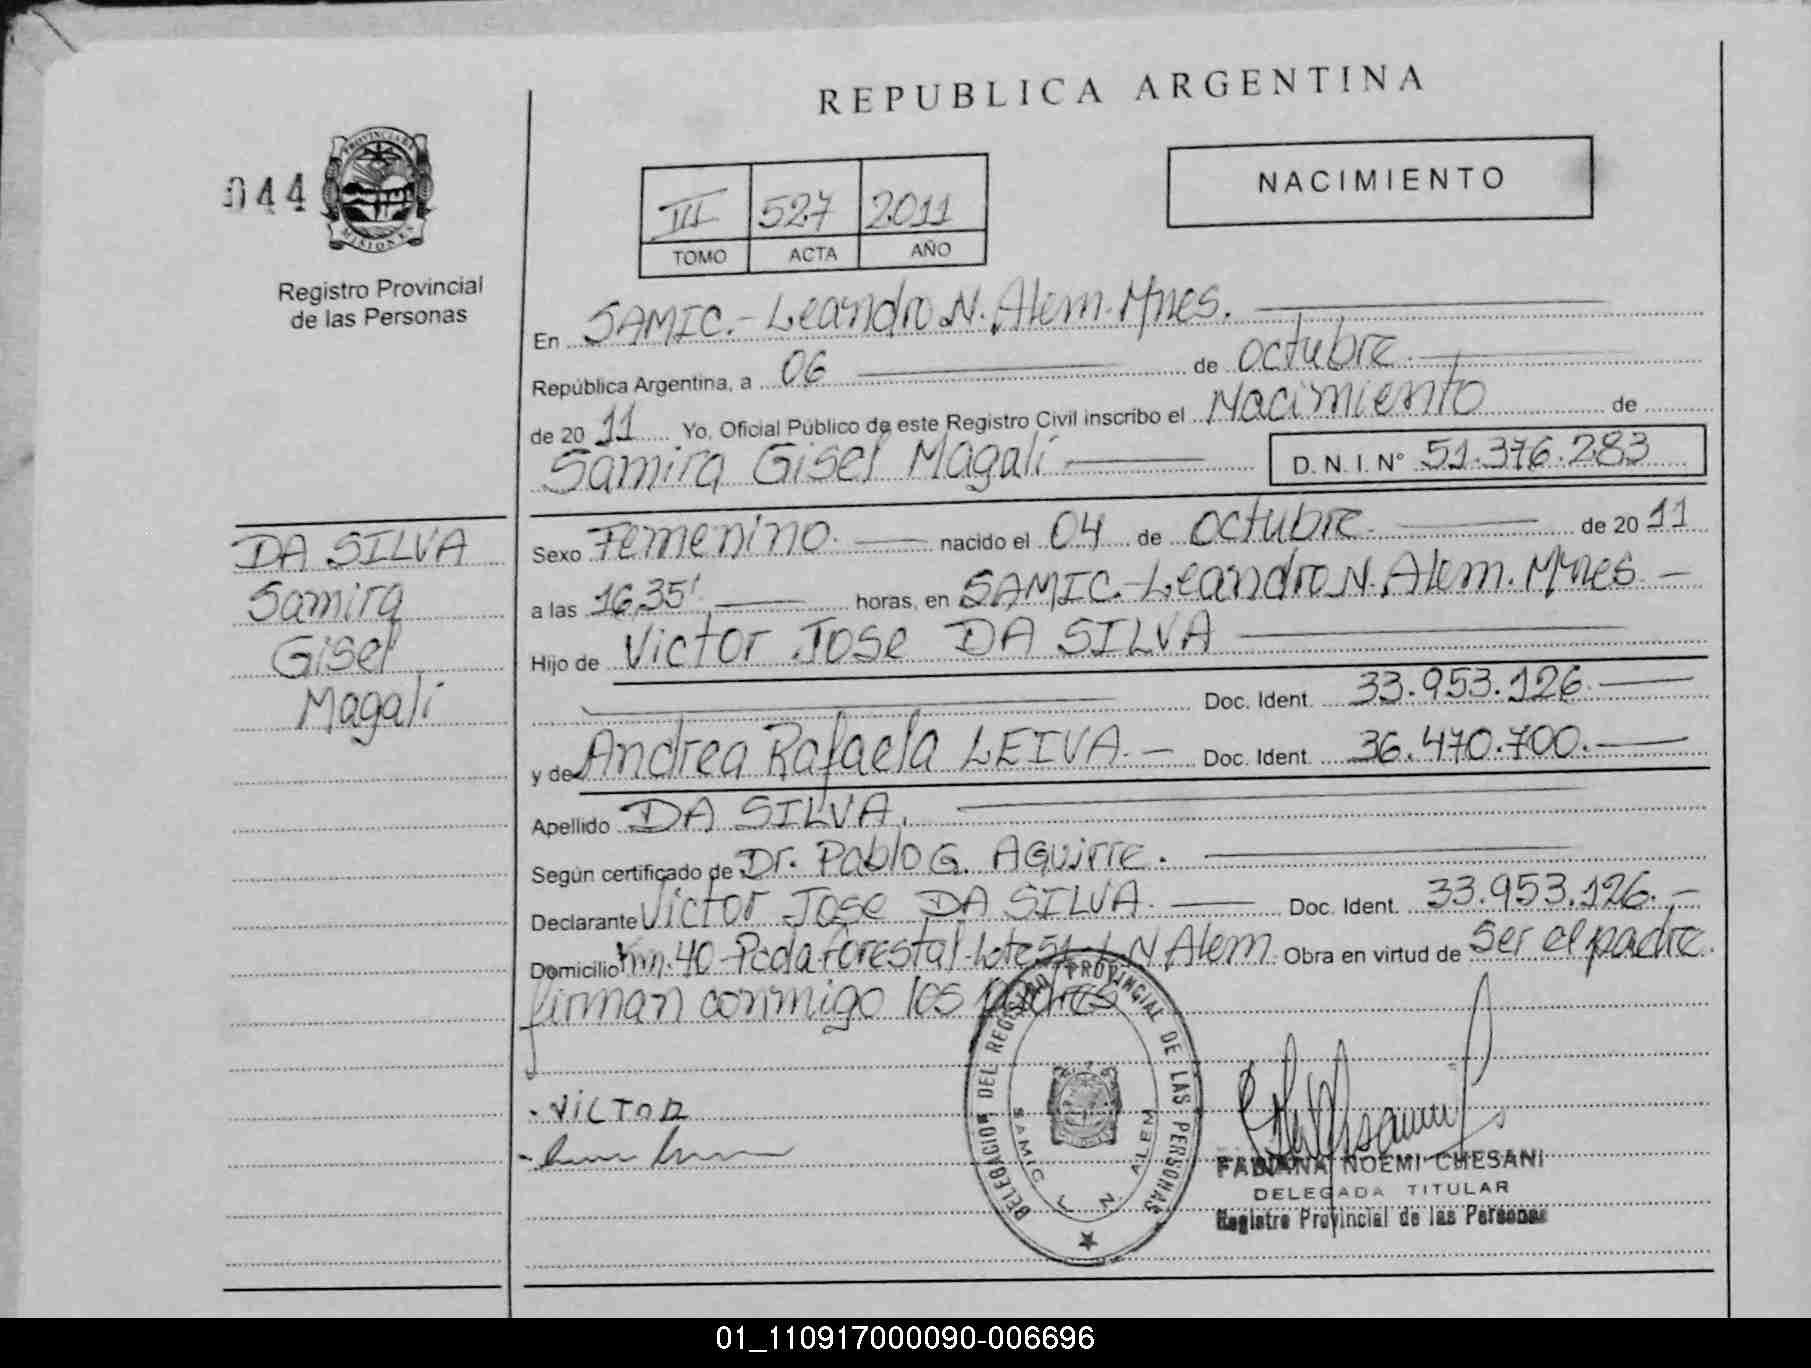 REPUBLICA ARGENTINA
044
PROVINCIA DE MISIONES
Registro Provincial
de las Personas
NACIMIENTO
III 527 2011
TOMO ACTA AÑO
En SAMIC.- Leandro N. Alem. Mnes.
República Argentina, a 06 de octubre.
de 20 11 Yo, Oficial Público de este Registro Civil inscribo el Nacimiento de
Samira Gisel Magali D.N.I. N° 51.376.283
DA SILVA
Samira
Gisel
Magali
Sexo Femenino. nacido el 04 de octubre. de 20 11
a las 16,35' horas, en SAMIC.- Leandro N. Alem. Mnes.
Hijo de Victor Jose DA SILVA
Doc. Ident. 33.953.126.
y de Andrea Rafaela LEIVA. Doc. Ident. 36.470.700.
Apellido DA SILVA.
Según certificado de Dr. Pablo G. Aguirre.
Declarante Victor Jose DA SILVA. Doc. Ident. 33.953.126.
Domicilio Km. 40 - Pcda forestal - Lote 51 - L N Alem. Obra en virtud de ser el padre.
firman conmigo los padres
. VICTOR
DELEGACION DEL REGISTRO PROVINCIAL DE LAS PERSONAS
SAMIC L. N. ALEM
FABIANA NOEMI CHESANI
DELEGADA TITULAR
Registro Provincial de las Personas
01_110917000090-006696